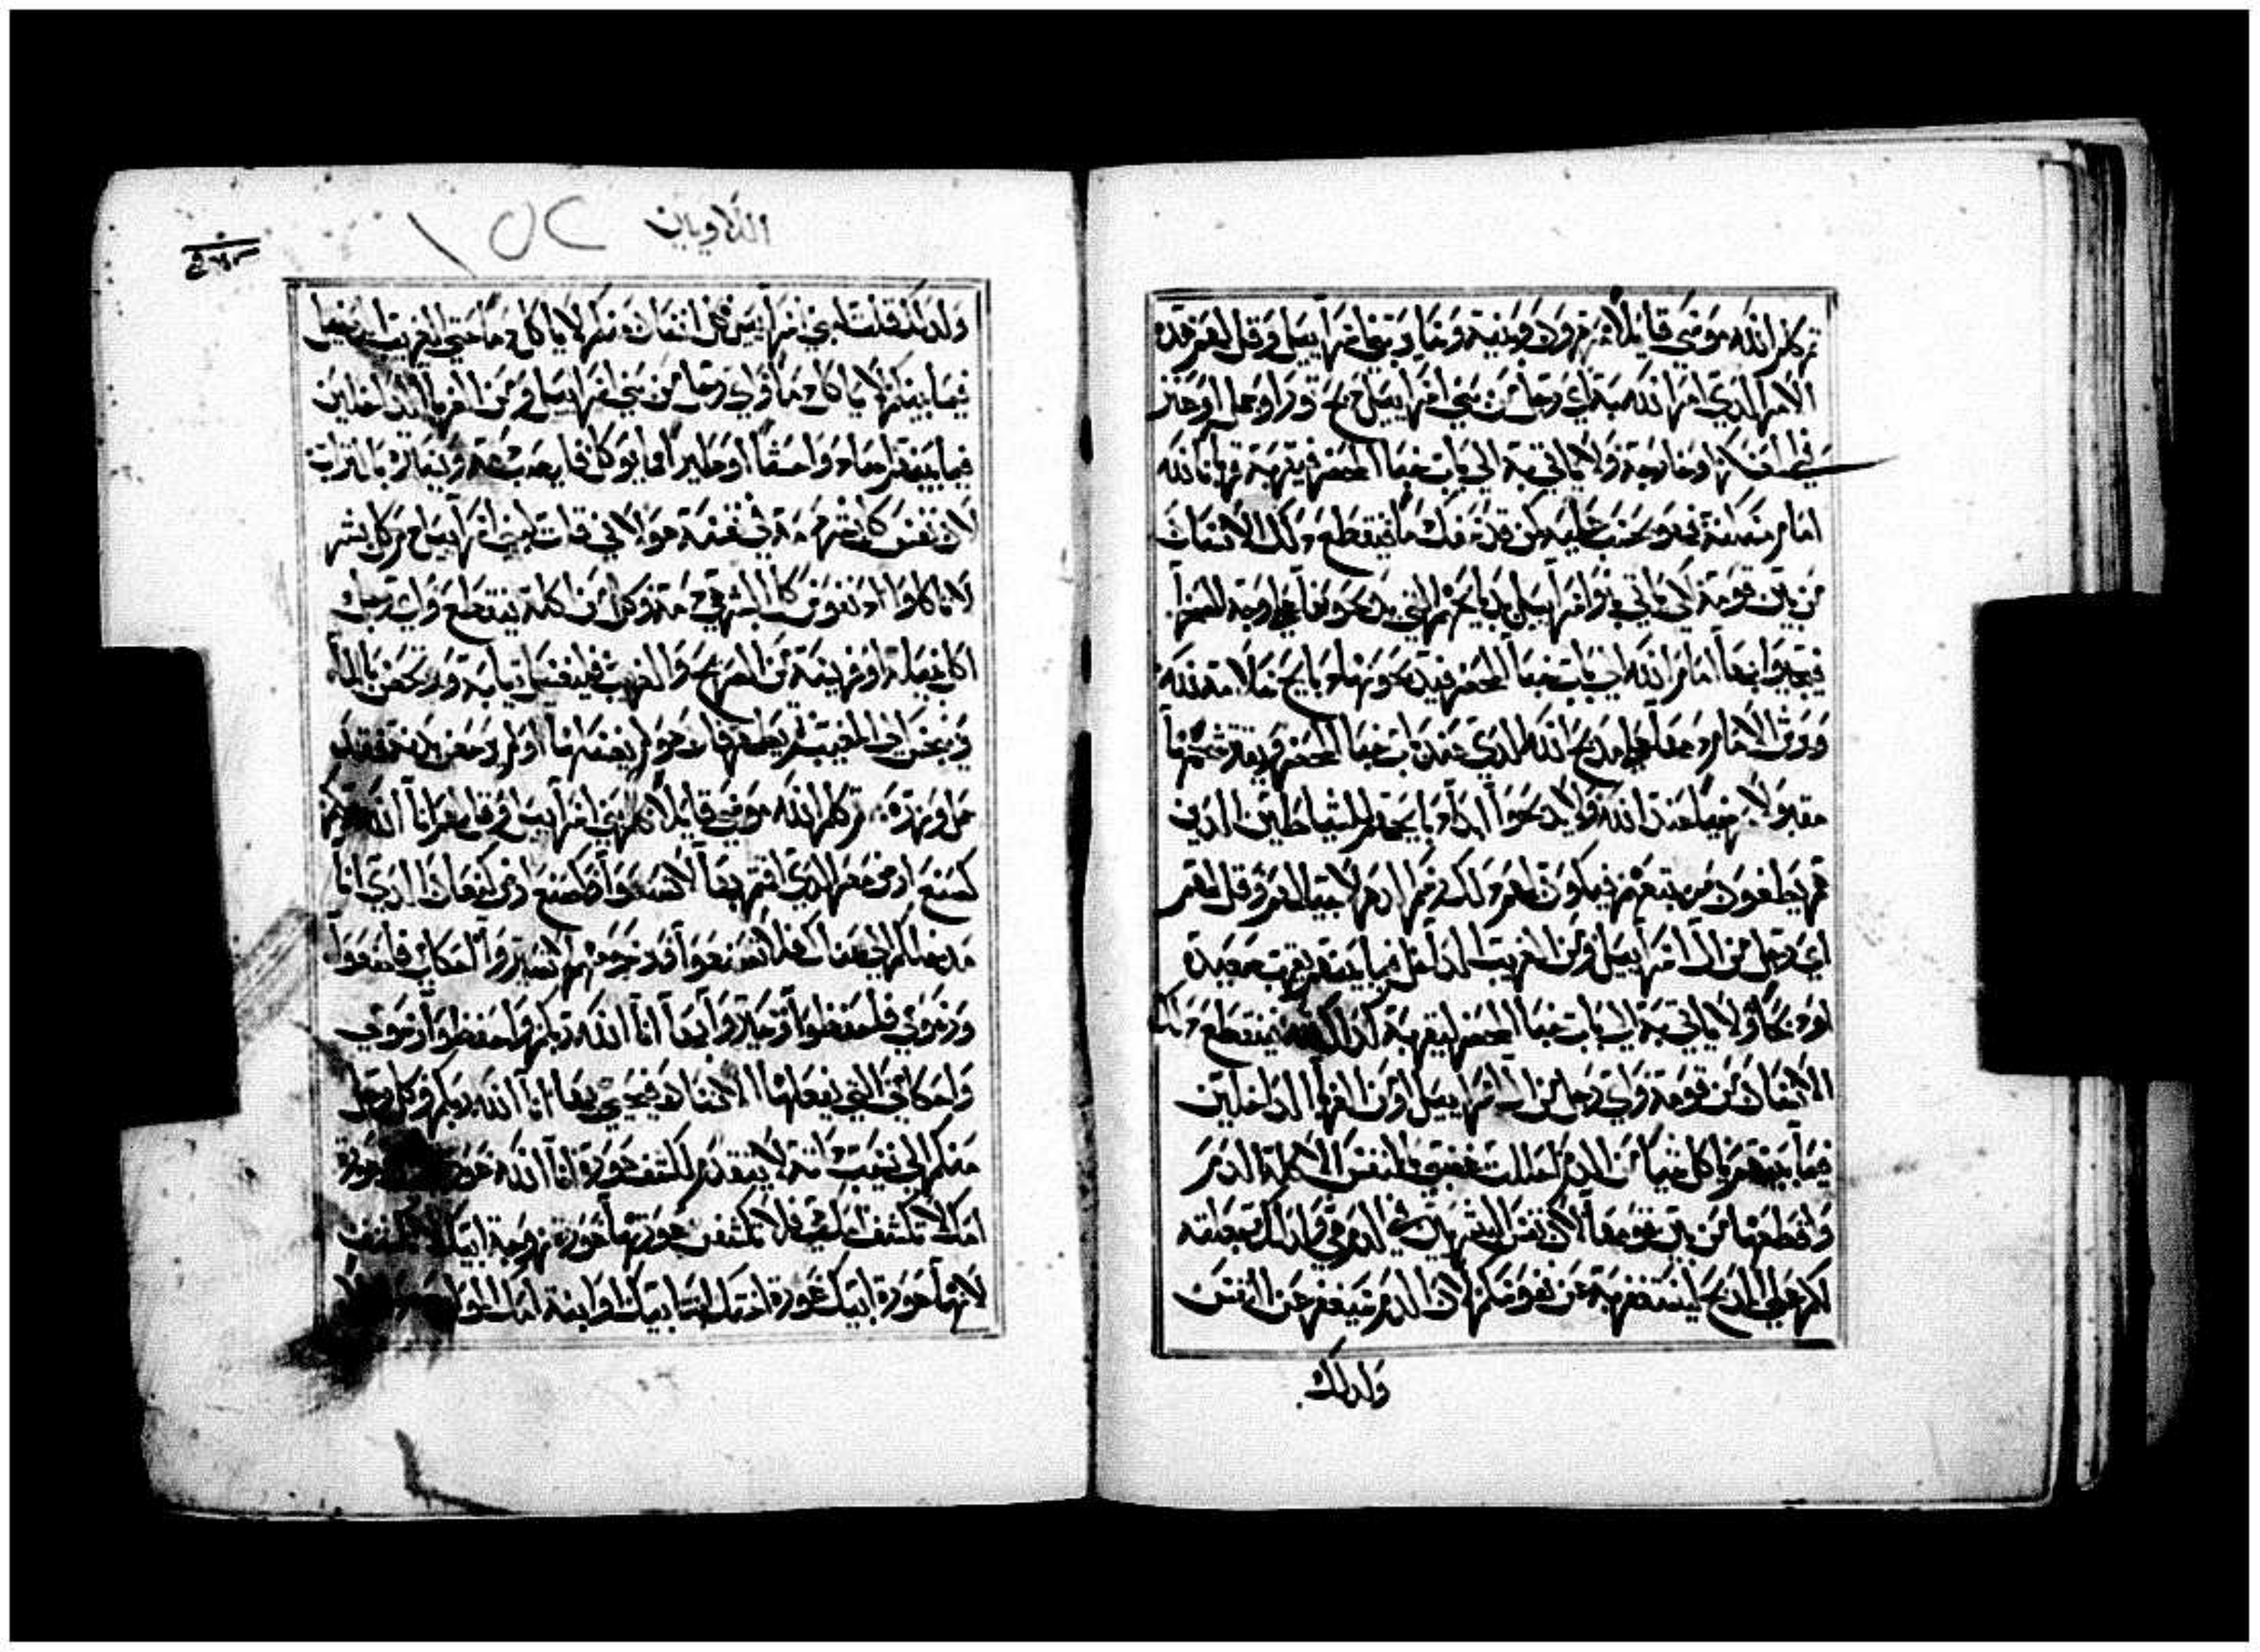 ثم كلم الله موسى قايلا كلم هرون وبنيه وساير بني اسراييل وقل لهم هذه
الامر الذي امر الله به اي رجل من بني اسراييل ذبح ثورا او حمل او عنز
في العسكر او خارجه ولا ياتي به الى باب خبا المحضر فيقربه قربانا لله
امام مسكنه فهو يحسب عليه كمن قد سفك دما فينقطع ذلك الانسان
من بين قومه لكي ياتي بنوا اسراييل بذبايحهم التي يذبحونها على وجه الصحرا
فيجيبوا بها امام الله الى باب خبا المحضر فيذبحونها ذبايح سلامه لله
ويرش الامام دمها على مذبح الله الذي عند باب خبا المحضر ويقتر شحمها
مقبولا مرضيا عند الله ولا يذبحوا ابدا ذبايحهم للشياطين الذين
هم يطغون من يتبعهم فيكون لهم ذلك رسم الدهر لاجيالهم وقل لهم
اي رجل من ال اسراييل ومن الغريب الدخيل فيما بينهم يقرب صعيده
او ذبحا ولا ياتي به الى باب خبا المحضر ليقربه لله فينقطع ذلك
الانسان من قومه واي رجل من ال اسراييل او من الغربا الدخلين
فيما بينهم ياكل شيا من الدم احللت غضبي في النفس الاكله الدم
واقطعها من بين قومها لان نفس البشر هي في الدم وكذلك جعلته
لكم على المذبح ليستغفر به عن نفوسكم لان الدم سيغفر عن النفس
ولذلك
اللاويين
١٥٢
ولذلك قلت لبني اسراييل كل انسان منكم لا ياكل دما حتى الغريب الدخيل
فيما بينكم لا ياكل دما واي رجل من بني اسراييل ومن الغربا الداخلين
فيما بينهم اصطاد وحشا او طير مما يوكل فليصب دمه ويغطيه بالتراب
لان نفس كل بشر دمه في نفسه هو لاني قلت لبني اسراييل دم كل بشر
لا تاكلوا لان نفوس كل البشر هي دمه وكل من اكله ينقطع واي رجل
اكل نبيلة او فريسة من الصريح والغريب فليغسل ثيابه ويرحض بالماء
وينجس الى المغيب ثم يطهر فان هو لم يغسلها ولم يرحض بدنه فقد
حمل وزره ثم كلم الله موسى قايلا كلم بني اسراييل وقل لهم انا الله ربكم
كصنع ارض مصر الذي اقمتم بها لا تصنعوا وكصنع ارض كنعان الذي انا
مدخلكم الى هناك فلا تصنعوا وفي رسومهم لا تسيروا احكامي فاصنعوا
ورسومي فاحفظوا وتسلكوا بها انا الله ربكم واحفظوا رسومي
واحكامي التي يعملها الانسان فيحيى بها انا الله ربكم وكل رجل
منكم الى نسيب لحمه لا يتقدم لكشف عورة انا الله عورة
امك لا تكشف امك هي فلا تكشف عورتها عورة زوجة ابيك لا تكشف
لانها عورة ابيك عورة اختك ابنة ابيك او ابنة امك